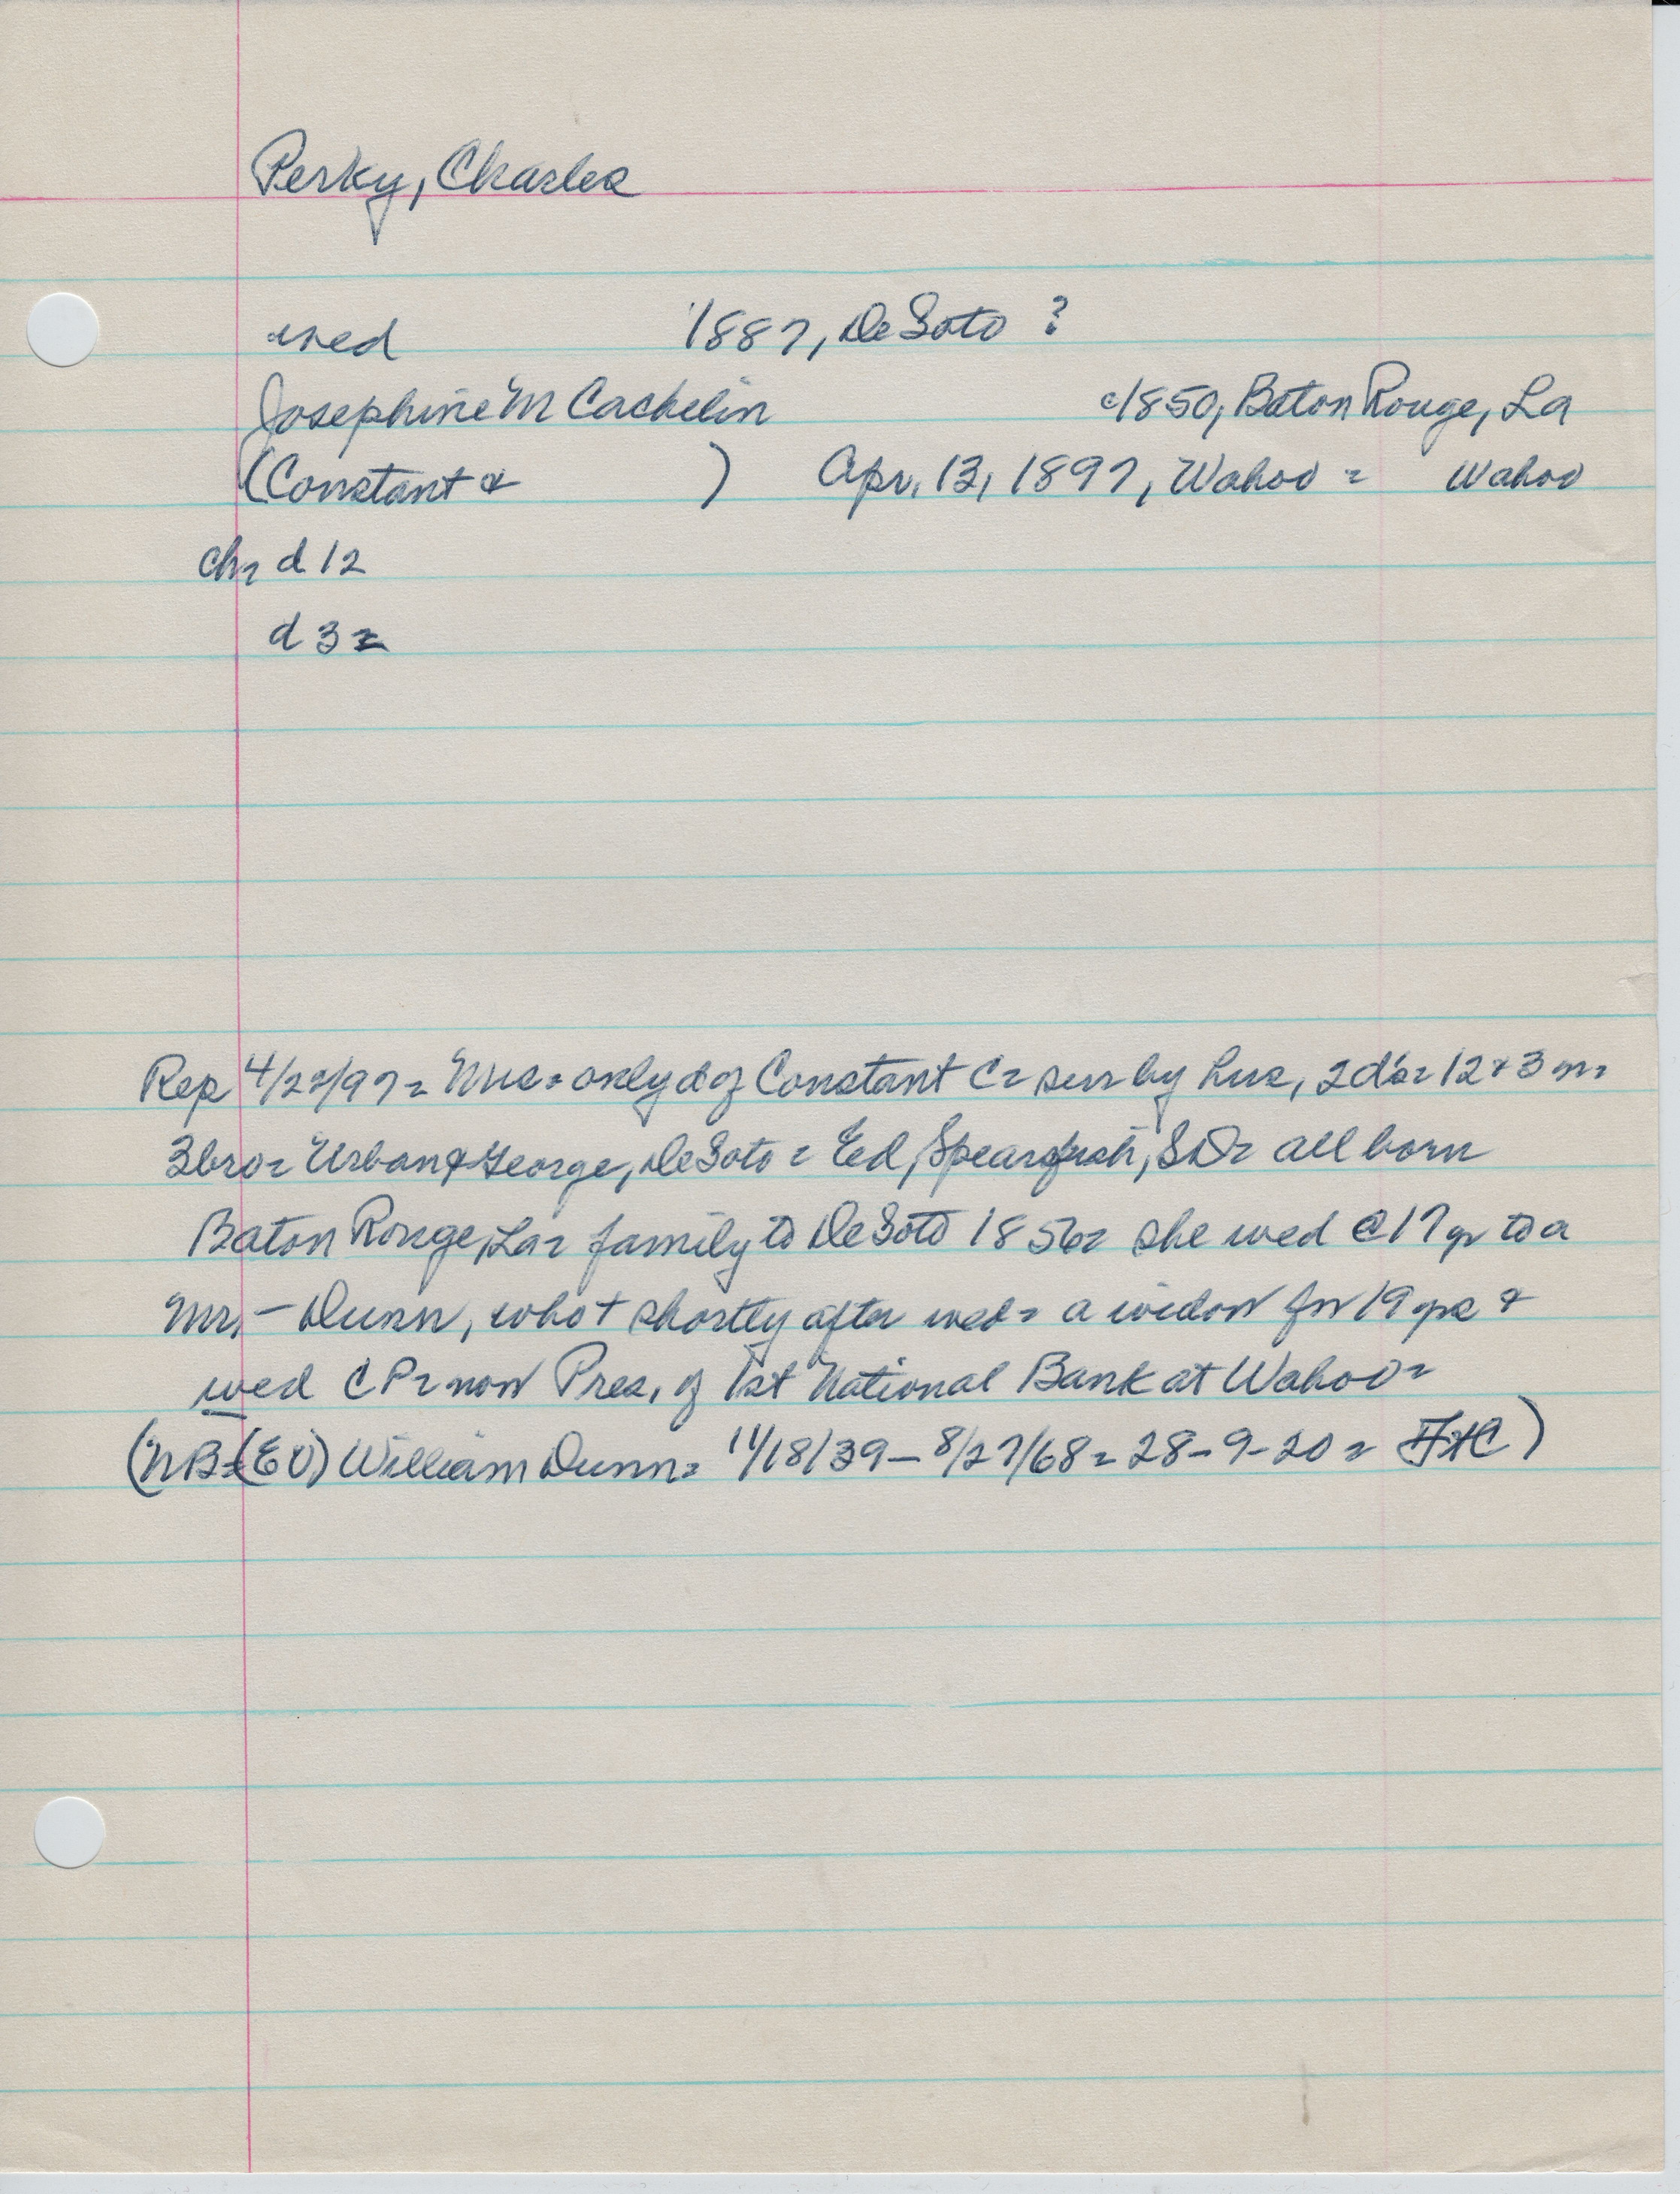 Perky, Charles
wed 1887, DeSoto ?
Josephine M Cachelin c1850, Baton Rouge, La
(Constant & ) Apr. 13, 1897, Wahoo = Wahoo
ch= d 12
d 3 =
Rep 4/22/97 = Mrs = only d of Constant C = surv by hus, 2 d's = 12 & 3 m.
3 bro = Urban & George, DeSoto = Ed, Spearfish, SD = all born
Baton Rouge, La = family to DeSoto 1856 = she wed @ 17 yr to a
Mr. – Dunn, who + shortly after wed = a widow for 19 yrs &
wed CP = now Pres. of 1st National Bank at Wahoo =
(NB = (EO) William Dunn = 11/18/39 – 8/27/68 = 28-9-20 = )